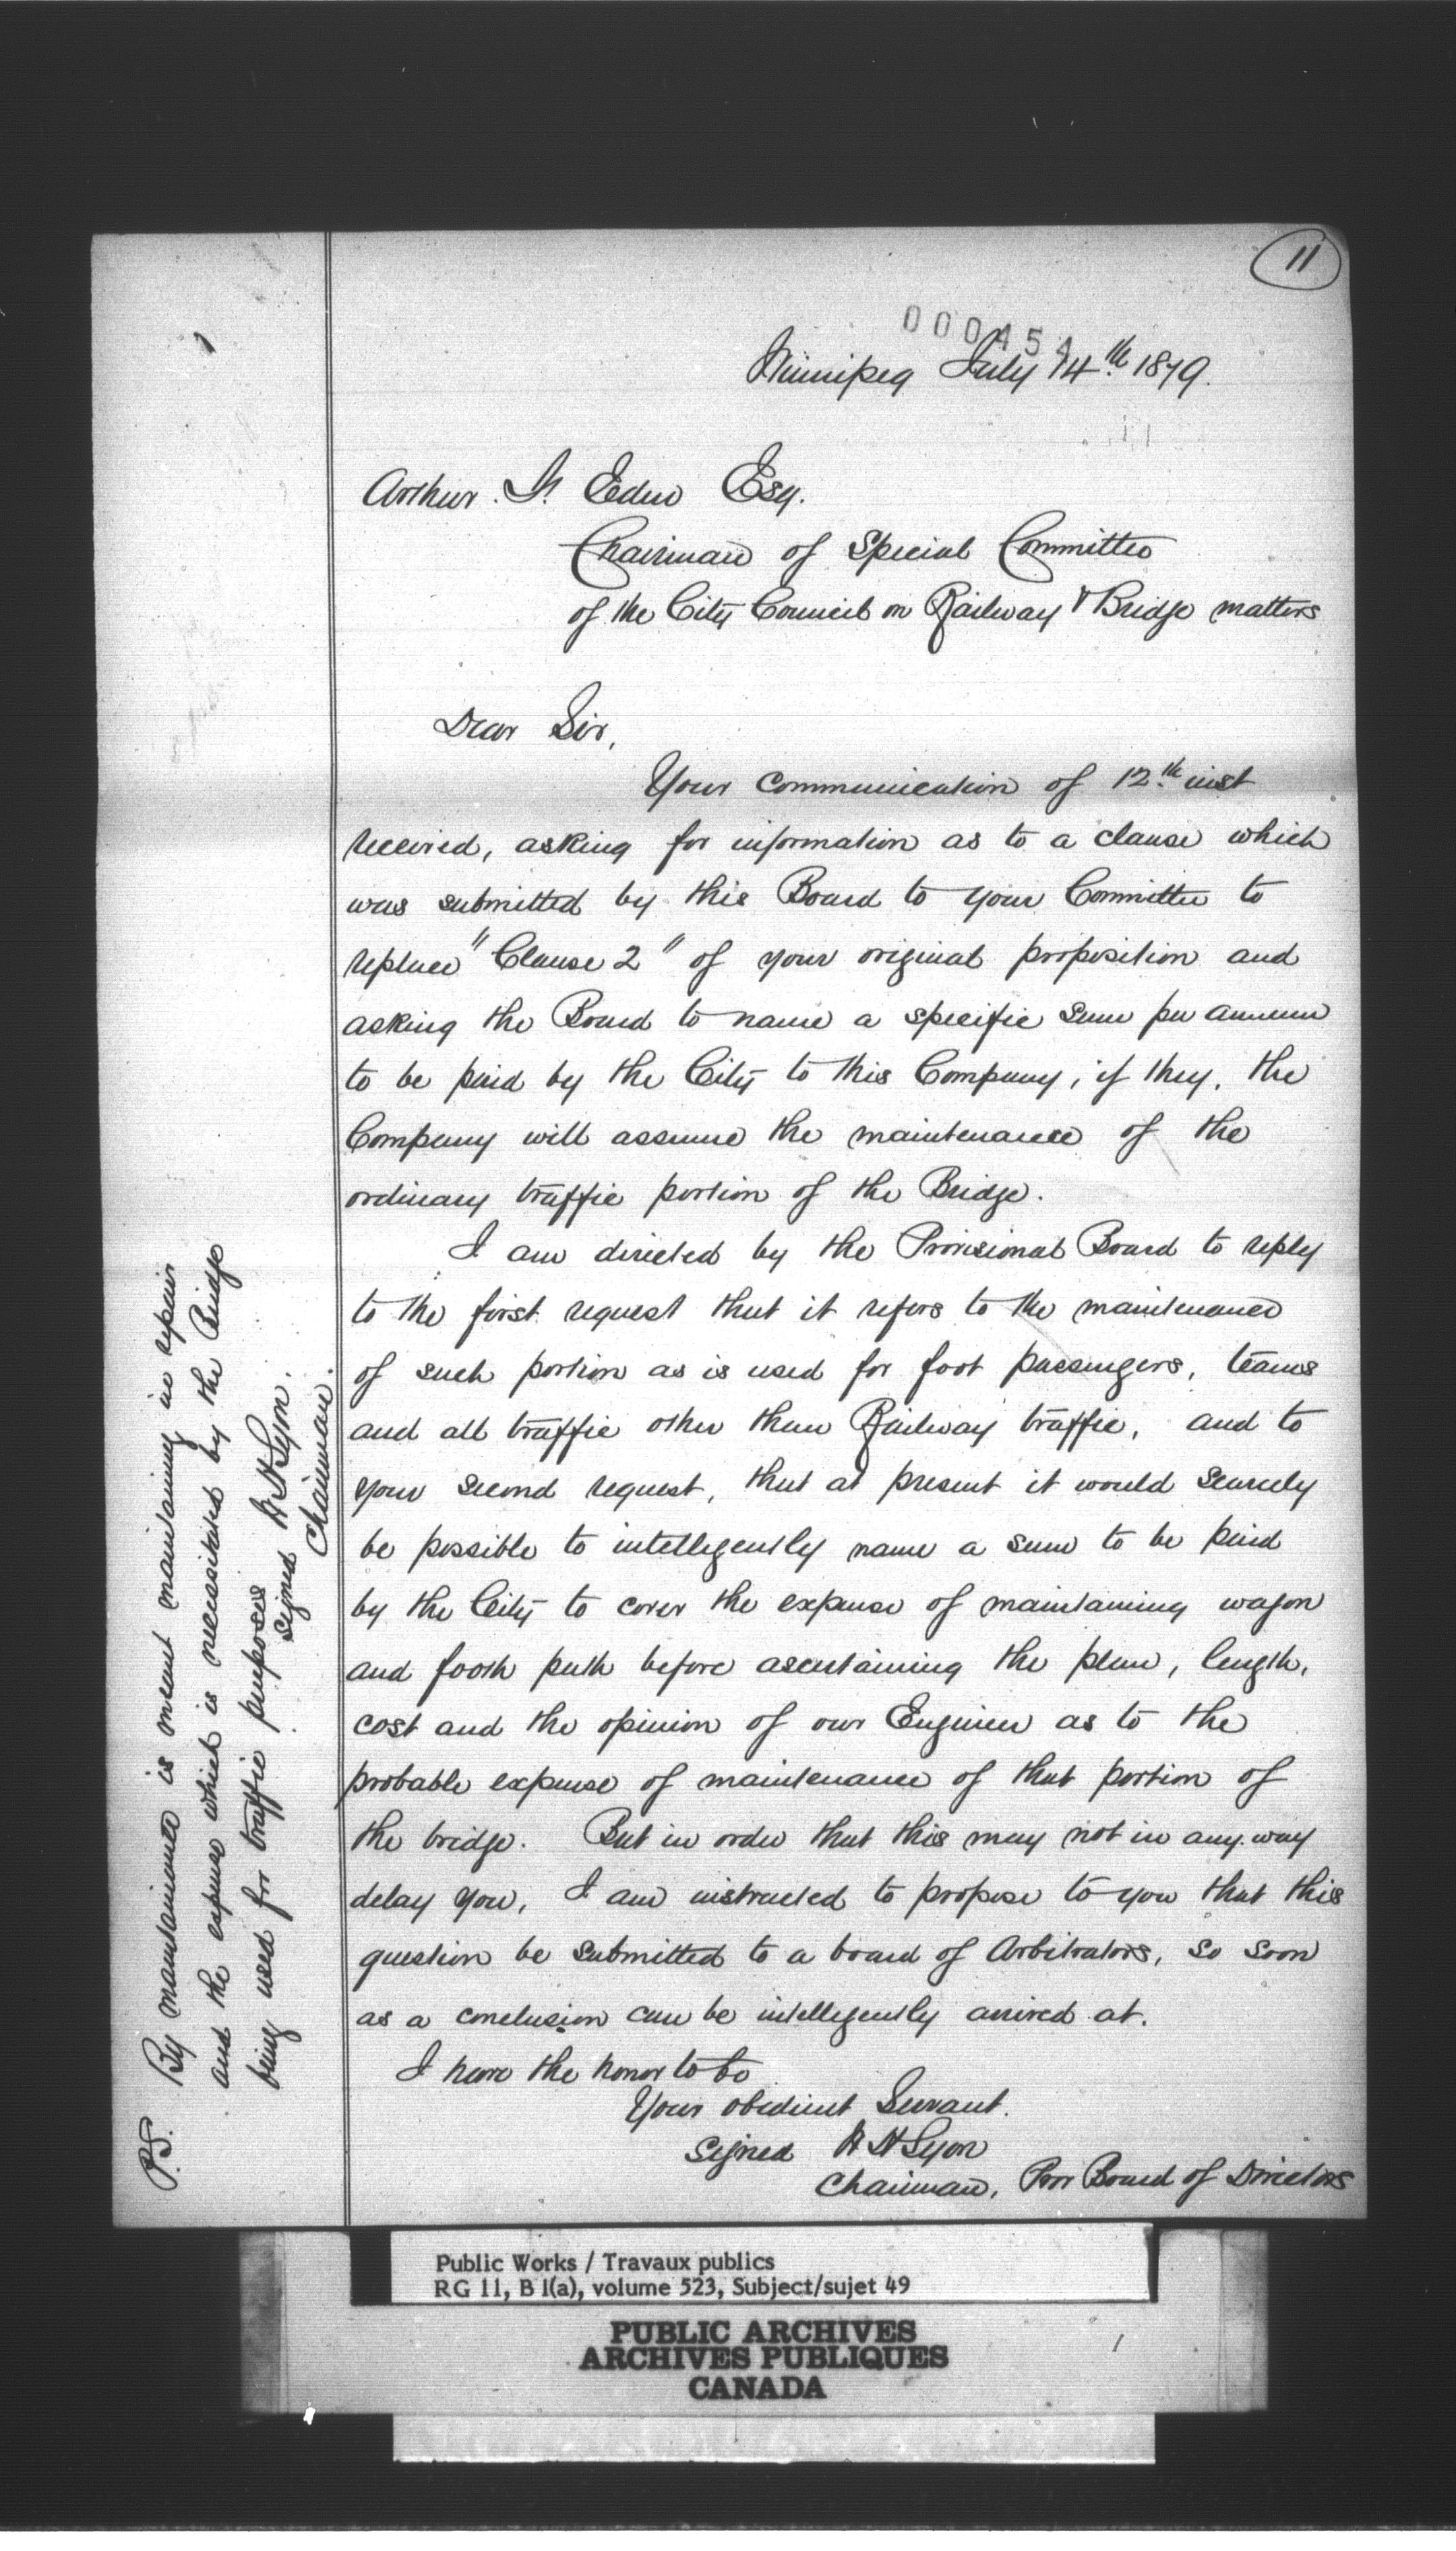 11
000454
Winnipeg July 14th 1879.
Arthur. F. Eden Esq.
Chairman of Special Committee
of the City Council on Railway & Bridge matters
Dear Sir,
Your communication of 12th inst
received, asking for information as to a clause which
was submitted by this Board to your Committee to
replace "Clause 2" of your original proposition and
asking the Board to name a specific sum per annum
to be paid by the City to this Company, if they, the
Company will assume the maintenance of the
ordinary traffic portion of the Bridge.
I am directed by the Provisional Board to reply
to the first request that it refers to the maintenance
of such portion as is used for foot passengers, teams
and all traffic other than Railway traffic, and to
your second request, that at present it would scarcely
be possible to intellegently name a sum to be paid
by the City to cover the expense of maintaining wagon
and footh path before ascertaining the plan, length,
cost and the opinion of our Engineer as to the
probable expense of maintenance of that portion of
the bridge. But in order that this may not in any way
delay you, I am instructed to propose to you that this
question be submitted to a board of Arbitrators, so soon
as a conclusion can be intellegently arrived at.
I have the honor to be
Your obedient Servant.
Signed W H Lyon
Chairman, Prov Board of Directors
P.S. By maintainance is meant maintaining in repair
and the expense which is necessitated by the Bridge
being used for traffic purposes
Signed W H Lyon.
Chairman.
Public Works / Travaux publics
RG 11, B 1(a), volume 523, Subject/sujet 49
PUBLIC ARCHIVES
ARCHIVES PUBLIQUES
CANADA